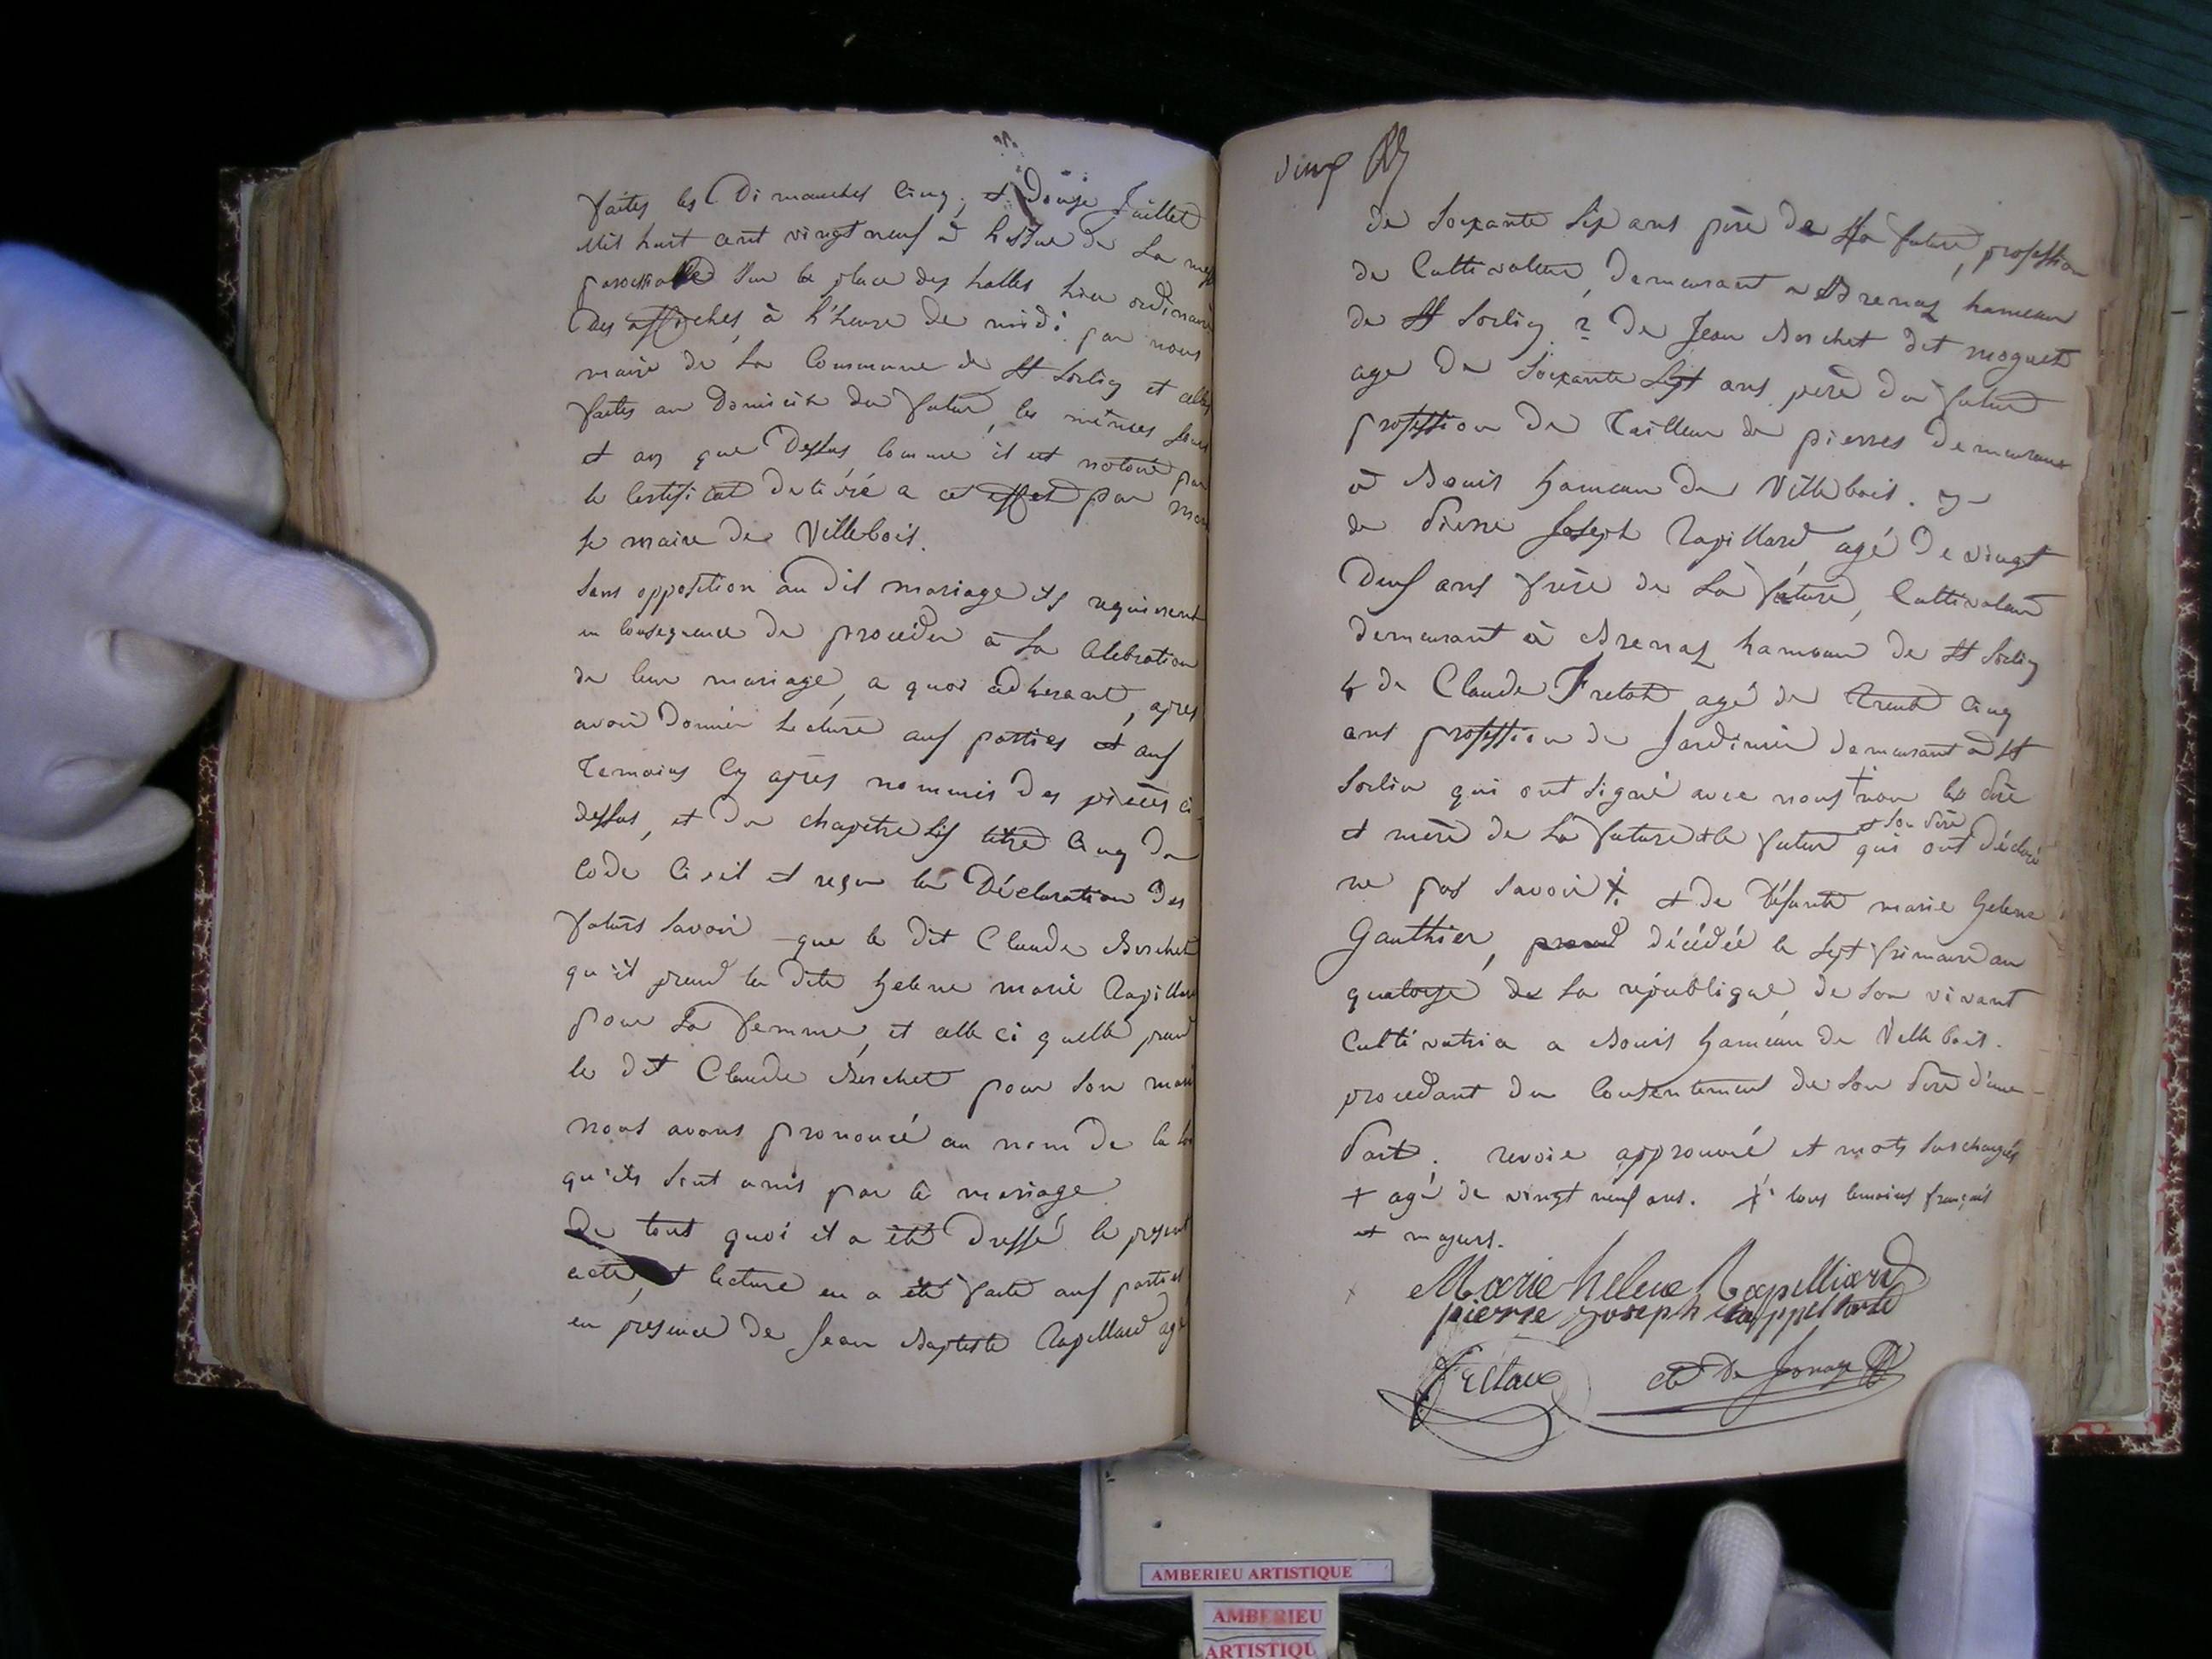 faites les Dimanches Cinq, et Douze Juillet
Mil huit cent vingt neuf à l'issue de La messe
paroissiale sur la place des halles lieu ordinaire
Des affiches, à l'heure de midi par nous
maire de La Commune de St Sorlin et celles
faites au Domicile du futur, les mêmes jours
et an que Dessus comme il est notoire par
le Certificat delivré a cet effet par mr
le maire de Villebois.
Sans opposition au dit mariage ils requirent
en Consequence de proceder à La Celebration
de leur mariage, a quoi adherant, apres
avoir Donner Lecture aux parties et aux
Temoins Cy après nommés des pieces ci-
dessus, et du chapitre six titre Cinq Du
Code Civil et reçu la Déclaration Des
futurs Savoir que le Dit Claude Berchet
qu'il prend la Dite helene marie Rapillard
pour Sa femme, et celle ci quelle prend
le Dit Claude Berchet pour Son mari
nous avons prononcé au nom De la loi
qu'ils Sont unis par le mariage
De tout quoi il a été Dressé le present
acte, et lecture en a été faite aux parties
en presence de Jean Baptiste Rapillard agé
de Soixante Six ans père De la future, profession
de Cultivateur, Demeurant a Brenaz hameau
de St Sorlin. 2 De Jean Berchet dit moguet
age De Soixante Sept ans pere Du futur
profession De Tailleur de pierres Demeurant
à Bouis hameau De Villebois. 3
de Pierre Joseph Rapillard agé De vingt
Deux ans frère de La future, Cultivateur
demeurant à Brenaz hameau de St Sorlin
4 de Claude agé de trente Cinq
ans profession de Jardinier demeurant à St
Sorlin qui ont Signé avec nous non les Père
et mère de La future et le futur et Son Père qui ont Déclaré
ne pas Savoir et de Défunte marie helene
Gauthier, décédée le Sept frimaire an
quatorze de La république de Son vivant
Cultivatrice a Bouis hameau de Villebois.
procedant du Consentement de Son Père d'une
Part. renvoie approuvé et mots Surchargés
+ agé de vingt neuf ans. tous temoins français
et majeurs.
Marie helene Rapilliard
pierre Joseph Rappillard